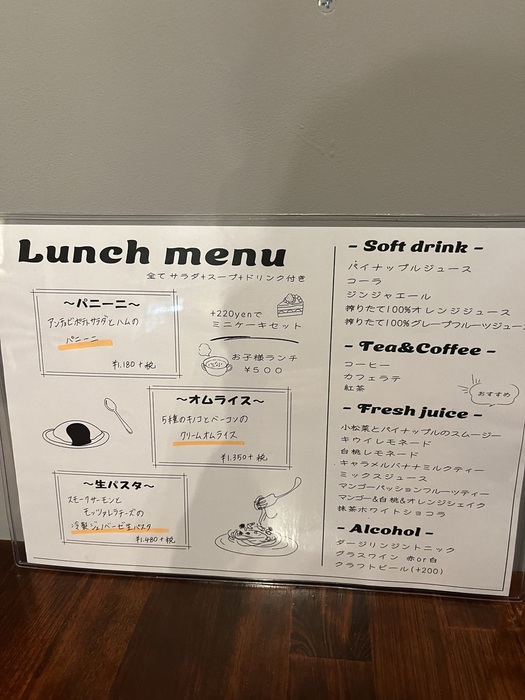 Lunch menu
全て サラダ+スープ+ドリンク付き
～パニーニ～
アンチョビポテトサラダとハムの
パニーニ
¥1,180+税
+220yenで
ミニケーキセット
お子様ランチ
¥５００
～オムライス～
5種のキノコとベーコンの
クリームオムライス
¥1,350+税
～生パスタ～
スモークサーモンと
モッツァレラチーズの
冷製ジェノベーゼ生パスタ
¥1,480+税
- Soft drink -
パイナップルジュース
コーラ
ジンジャエール
搾りたて100%オレンジジュース
搾りたて100%グレープフルーツジュース
- Tea&Coffee -
コーヒー
カフェラテ
紅茶
おすすめ
- Fresh juice -
小松菜とパイナップルのスムージー
キウイレモネード
白桃レモネード
キャラメルバナナミルクティー
ミックスジュース
マンゴーパッションフルーツティー
マンゴー&白桃&オレンジシェイク
抹茶ホワイトショコラ
- Alcohol -
ダージリンジントニック
グラスワイン 赤or白
クラフトビール(+200)